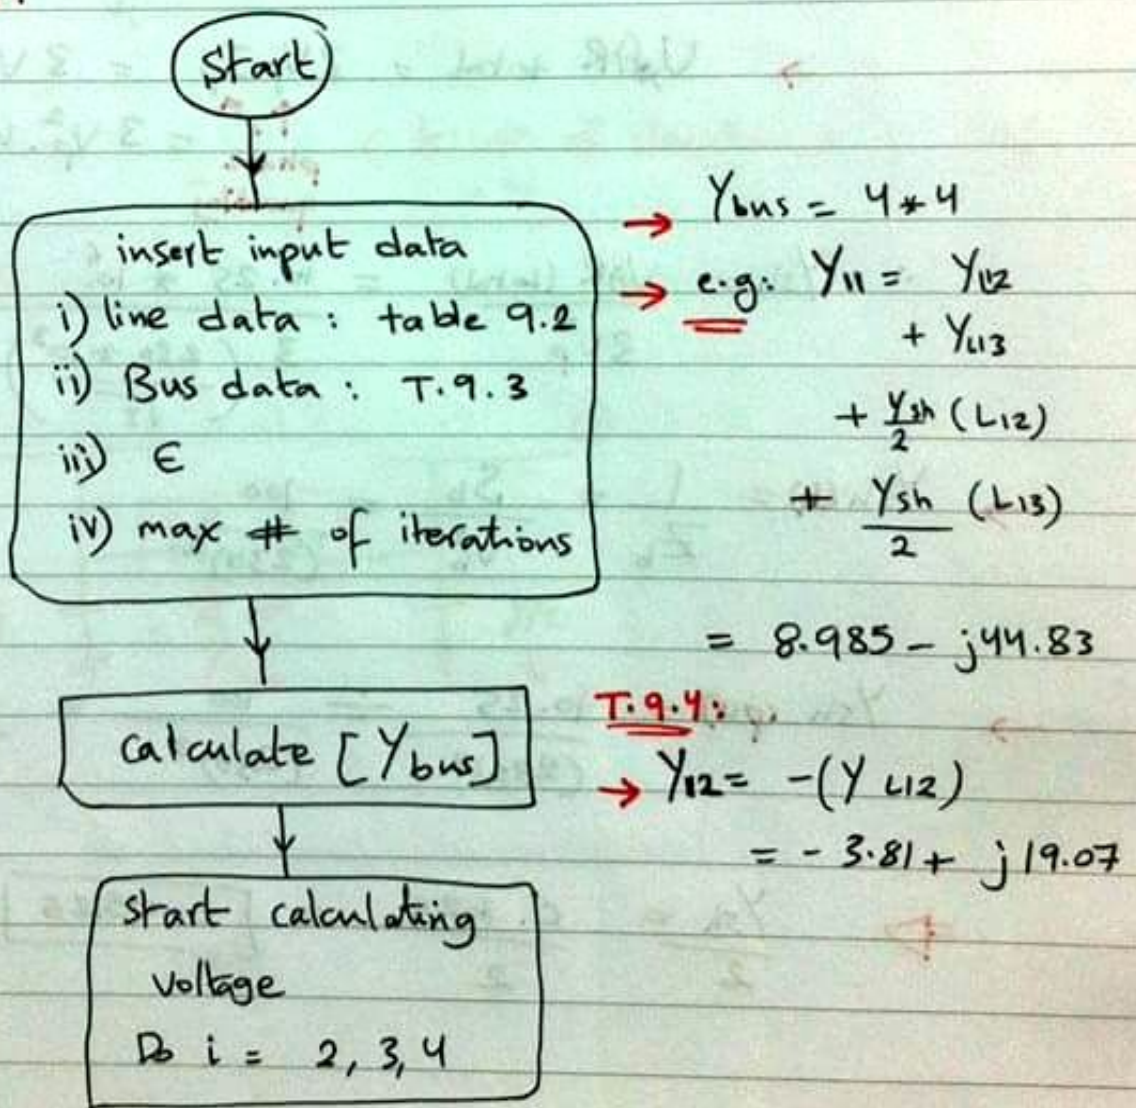 Start
insert input data
i) line data : table 9.2
ii) Bus data : T.9.3
iii) ϵ
iv) max # of iterations
calculate [Ybus]
start calculating
voltage
Do i = 2, 3, 4
→ Ybus = 4*4
→ e.g: Y11 = YL12
+ YL13
+ Ysh/2 (L12)
+ Ysh/2 (L13)
= 8.985 - j44.83
T.9.4:
→ Y12 = -(Y L12)
= - 3.81 + j19.07